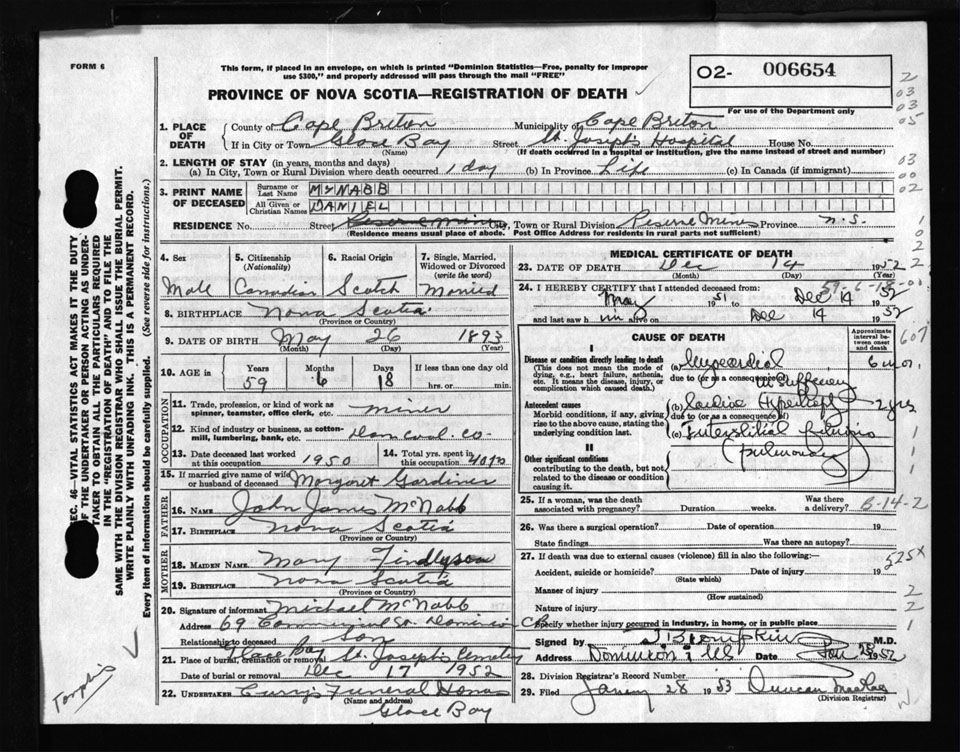 FORM 6
This form, if placed in an envelope, on which is printed "Dominion Statistics—Free, penalty for improper
use $300," and properly addressed will pass through the mail "FREE"
02- 006654
PROVINCE OF NOVA SCOTIA—REGISTRATION OF DEATH
For use of the Department only
1. PLACE OF DEATH County of Cape Breton Municipality of Cape Breton
If in City or Town Glace Bay Street St. Joseph's Hospital House No.
(Name) (If death occurred in a hospital or institution, give the name instead of street and number)
2. LENGTH OF STAY (in years, months and days)
(a) In City, Town or Rural Division where death occurred 1 day (b) In Province Life (c) In Canada (if immigrant)
3. PRINT NAME OF DECEASED Surname or Last Name McNABB
All Given or Christian Names DANIEL
RESIDENCE No. Street Reserve Mines City, Town or Rural Division Reserve Mines Province N.S.
(Residence means usual place of abode. Post Office Address for residents in rural parts not sufficient)
4. Sex Male
5. Citizenship (Nationality) Canadian
6. Racial Origin Scotch
7. Single, Married, Widowed or Divorced (write the word) Married
8. BIRTHPLACE Nova Scotia
(Province or Country)
9. DATE OF BIRTH May 26 1893
(Month) (Day) (Year)
10. AGE in Years 59 Months 6 Days 18 If less than one day
hrs. or min.
OCCUPATION
11. Trade, profession, or kind of work as spinner, teamster, office clerk, etc. miner
12. Kind of industry or business, as cotton-mill, lumbering, bank, etc. Dom Coal Co
13. Date deceased last worked at this occupation 1950
14. Total yrs. spent in this occupation 40
15. If married give name of wife or husband of deceased Margaret Gardiner
FATHER
16. Name John James McNabb
17. Birthplace Nova Scotia
(Province or Country)
MOTHER
18. MAIDEN NAME Mary Findlyson
19. BIRTHPLACE Nova Scotia
(Province or Country)
20. Signature of informant Michael McNabb
Address 69 Commercial St. Dominion
Relationship to deceased Son
21. Place of burial, cremation or removal Glace Bay St. Joseph's Cemetery
Date of burial or removal Dec 17 1952
22. UNDERTAKER Curry's Funeral Home
(Name and address)
Glace Bay
MEDICAL CERTIFICATE OF DEATH
23. DATE OF DEATH Dec 14 1952
(Month) (Day) (Year)
24. I HEREBY CERTIFY that I attended deceased from:
May 1951 to Dec 14 1952
and last saw him alive on Dec 14 1952
CAUSE OF DEATH
Approximate interval between onset and death
I
Disease or condition directly leading to death
(This does not mean the mode of dying, e.g., heart failure, asthenia, etc. It means the disease, injury, or complication which caused death.)
(a) Myocardial
due to (or as a consequence of)
6 mos.
Antecedent causes
Morbid conditions, if any, giving rise to the above cause, stating the underlying condition last.
(b) Cardiac Hypertrophy 2 yrs
due to (or as a consequence of)
(c) Interstitial fibrosis
(pulmonary)
II
Other significant conditions
contributing to the death, but not related to the disease or condition causing it.
25. If a woman, was the death associated with pregnancy? Duration weeks. Was there a delivery?
26. Was there a surgical operation? Date of operation 19
State findings Was there an autopsy?
27. If death was due to external causes (violence) fill in also the following:—
Accident, suicide or homicide? Date of injury 19
(State which)
Manner of injury
(How sustained)
Nature of injury
Specify whether injury occurred in industry, in home, or in public place
Signed by M.D.
Address Dominion Date 1952
28. Division Registrar's Record Number
29. Filed 28 1953 Duncan
(Division Registrar)
SEC. 46—VITAL STATISTICS ACT MAKES IT THE DUTY
OF THE UNDERTAKER OR PERSON ACTING AS UNDER-
TAKER TO OBTAIN ALL THE PARTICULARS REQUIRED
IN THE "REGISTRATION OF DEATH" AND TO FILE THE
SAME WITH THE DIVISION REGISTRAR WHO SHALL ISSUE THE BURIAL PERMIT.
WRITE PLAINLY WITH UNFADING INK. THIS IS A PERMANENT RECORD.
Every item of information should be carefully supplied. (See reverse side for instructions.)
B-14-2
525X